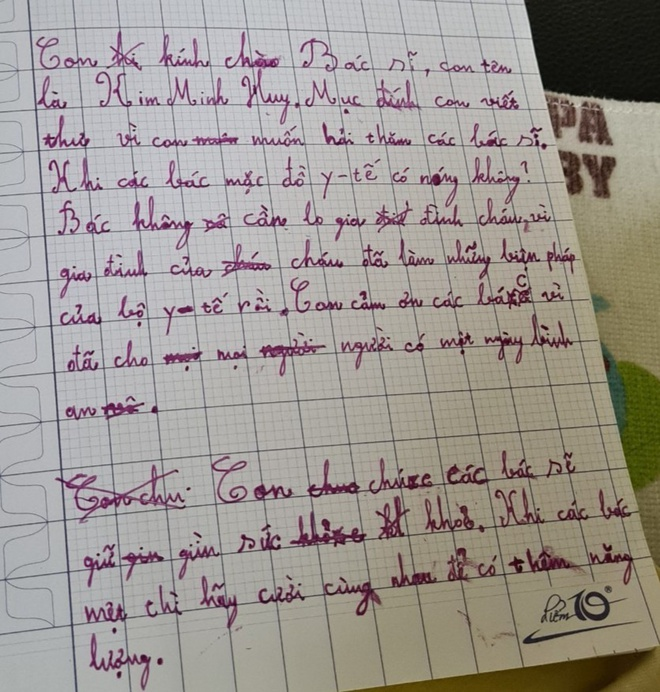 Con kính chào Bác sĩ, con tên
là Kim Minh Huy. Mục đính con viết
thư vì con muốn hỏi thăm các bác sĩ.
Khi các bác mặc đồ y-tế có nóng không?
Bác không cần lo gia đình cháu, vì
gia đình của cháu đã làm những biện pháp
của bộ y-tế rồi. Con cảm ơn các bác vì
đã cho mọi người có một ngày bình
an.
Con chúc các bác sĩ
giữ gìn sức khoẻ. Khi các bác
mệt thì hãy cười cùng nhau để có thêm năng
lượng.
PA
BY
Điểm 10